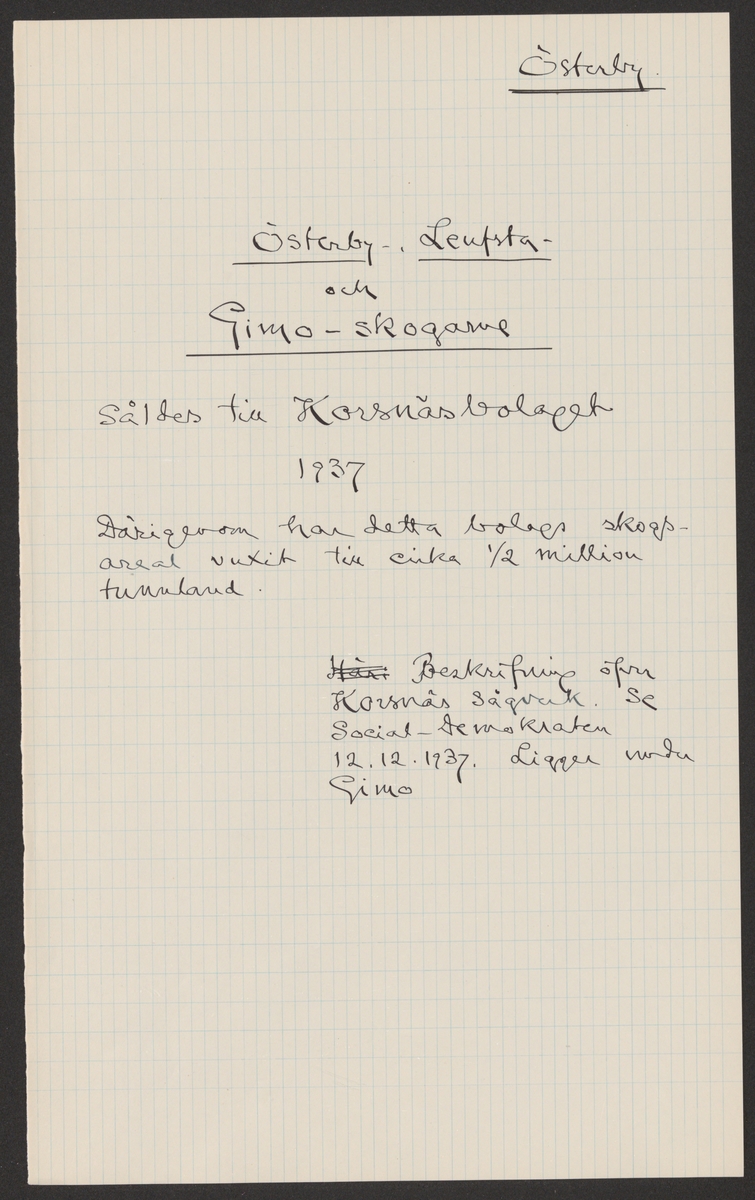 Österby.
Österby-, Leufsta-
och
Gimo-skogarne
Såldes till Korsnäsbolaget
1937
Därigenom har detta bolags skogs-
areal vuxit till cirka 1/2 million
tunnland.
Beskrifning öfver
Korsnäs sågverk. Se
Social-Demokraten
12.12.1937. Ligger under
Gimo